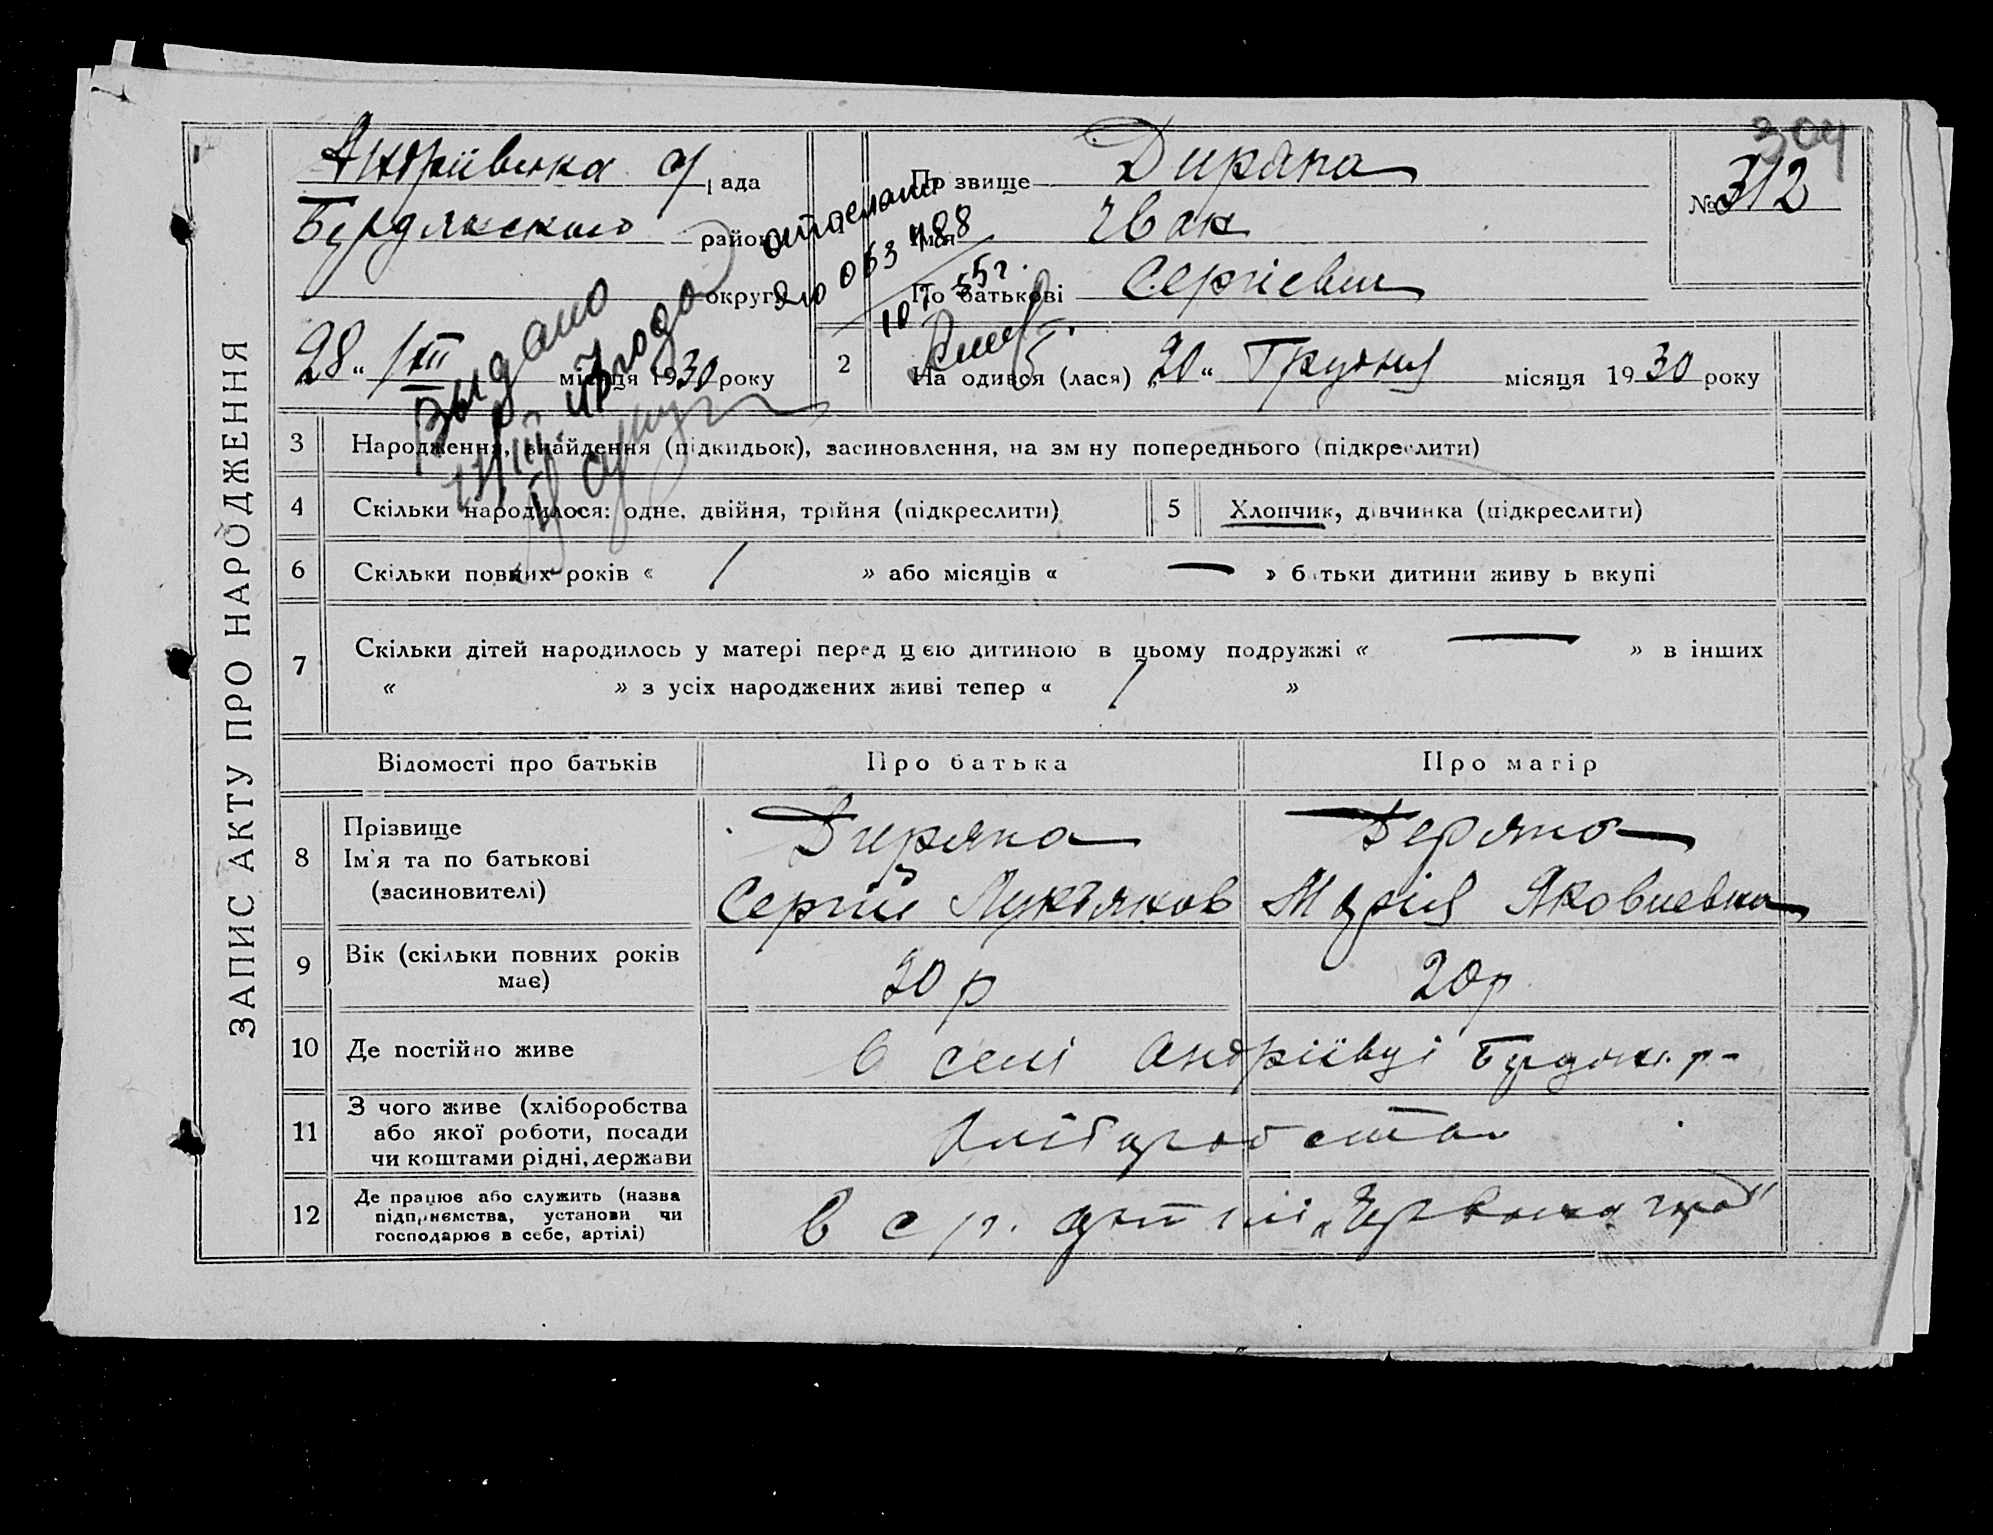 304
ЗАПИС АКТУ ПРО НАРОДЖЕННЯ
Андріївська с/рада
Бердянського район
округа
28 „ XII місяця 1930 року
Выдано
1
Прізвище Диряпа
Імя Іван
По батькові Сергієвич
№ 312
ЯЮ 063488
55 г.
2 На одився (лася) „20“ Грудня місяця 1930 року
3 Народження, знайдення (підкидьок), засиновлення, на зм ну попереднього (підкреслити)
4 Скільки народилося: одне, двійня, трійня (підкреслити)
5 Хлопчик, дівчинка (підкреслити)
6 Скільки повних років « 1 » або місяців « — » батьки дитини живу ь вкупі
7 Скільки дітей народилось у матері перед цією дитиною в цьому подружжі « — » в інших
« » з усіх народжених живі тепер « 1 »
Відомості про батьків Про батька Про матір
8 Прізвище
Ім'я та по батькові
(засиновителі)
Диряпа
Сергій Лукъянов
Деряпа
Марія Яковлевна
9 Вік (скільки повних років
має)
20 р 20 р
10 Де постійно живе в селі Андріївці Бердянс. р-
11 З чого живе (хліборобства
або якої роботи, посади
чи коштами рідні, держави
хліборобство
12 Де працює або служить (назва
підприємства, установи чи
господарює в себе, артілі)
в с. г. артілі „Червона